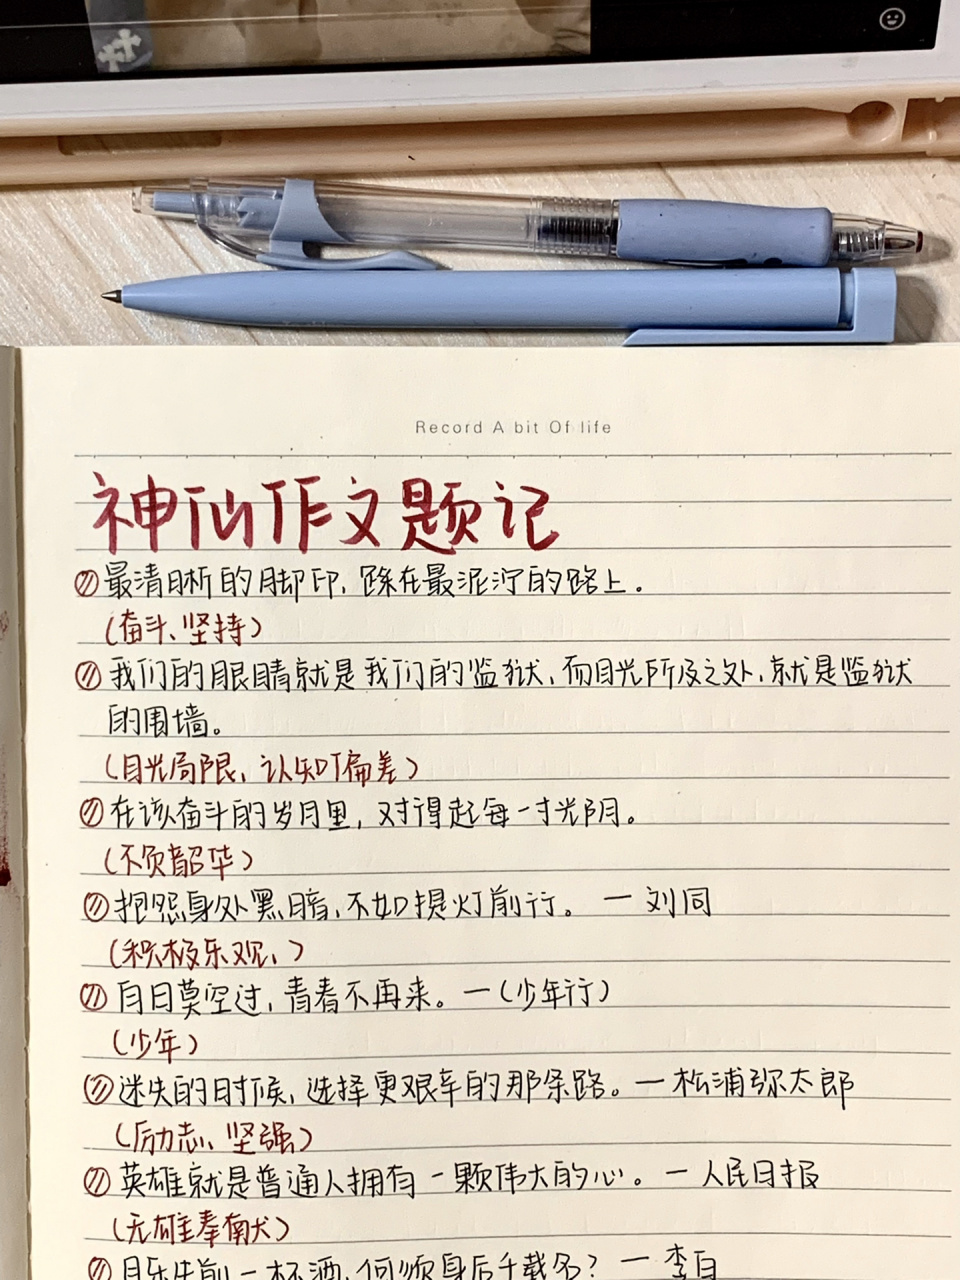 Record A bit Of life
神仙作文题记
最清晰的脚印，踩在最泥泞的路上。
(奋斗、坚持)
我们的眼睛就是我们的监狱，而目光所及之处，就是监狱
的围墙。
(目光局限、认知偏差)
在该奋斗的岁月里，对得起每一寸光阴。
(不负韶华)
抱怨身处黑暗，不如提灯前行。—刘同
(积极乐观、)
白日莫空过，青春不再来。—(少年行)
(少年)
迷失的时候，选择更艰辛的那条路。—松浦弥太郎
(励志、坚强)
英雄就是普通人拥有一颗伟大的心。—人民日报
(无雄奉献)
且乐生前一杯酒，何须身后千载名？—李白